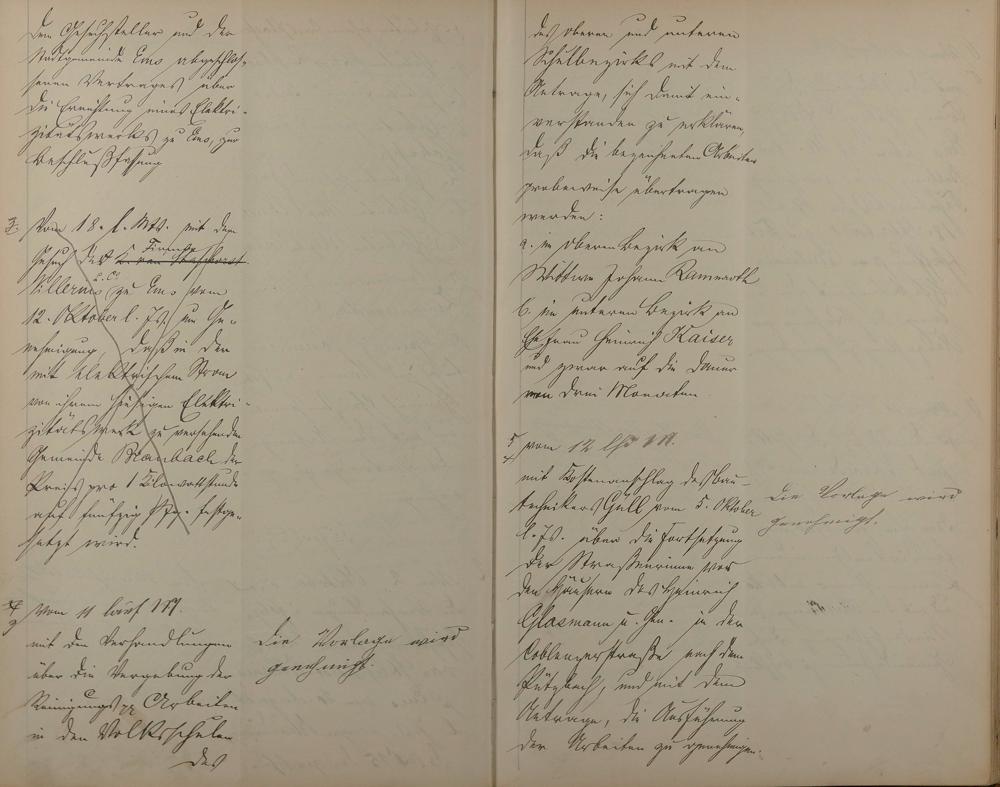 dem Gesuchsteller und der
Stadtgemeinde Ems abgeschlos-
senen Vertrages über
die Errichtung eines Elektri-
zitätswerks zu Ems, zur
Beschlußfassung
3. Vom 18. l. Mts. mit dem
Gesuch der Firma
Willerms & Cie zu Ems vom
12. Oktober l. Js. um Ge-
nehmigung, daß in der
mit elektrischem Strom
von ihrem hiesigen Elektri-
zitätswerk zu versehenden
Gemeinde Braubach der
Preis pro 1 Kilowattstunde
auf fünfzig Pfg. festge-
setzt wird.
4. Vom 11 lauf M.
mit den Verhandlungen
über die Vergebung der
Reinigungs pp Arbeiten
in den Volksschulen
des
Die Vorlage wird
genehmigt.
des oberen und unteren
Schulbezirks mit dem
Antrage, sich damit ein-
verstanden zu erklären,
daß die bezeichneten Arbeiten
probeweise übertragen
werden:
a. im oberen Bezirk an
Wittwe Johann
b. im unteren Bezirk an
Ehefrau Heinrich Kaiser
und zwar auf die Dauer
von drei Monaten.
5. vom 12 lfd M.
mit Kostenanschlag des Bau-
technikers Güll vom 5. Oktober
l. Js. über die Fortsetzung
der Straßenrinne vor
den Häusern des Heinrich
Glasmann u. Gen. in der
Coblenzerstraße nach dem
Pützbach, und mit dem
Antrage, die Ausführung
der Arbeiten zu genehmigen.
Die Vorlage wird
genehmigt.